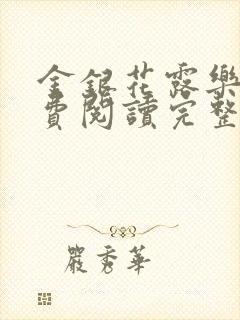 金銀花露樂
費閱讀完整
嚴秀華